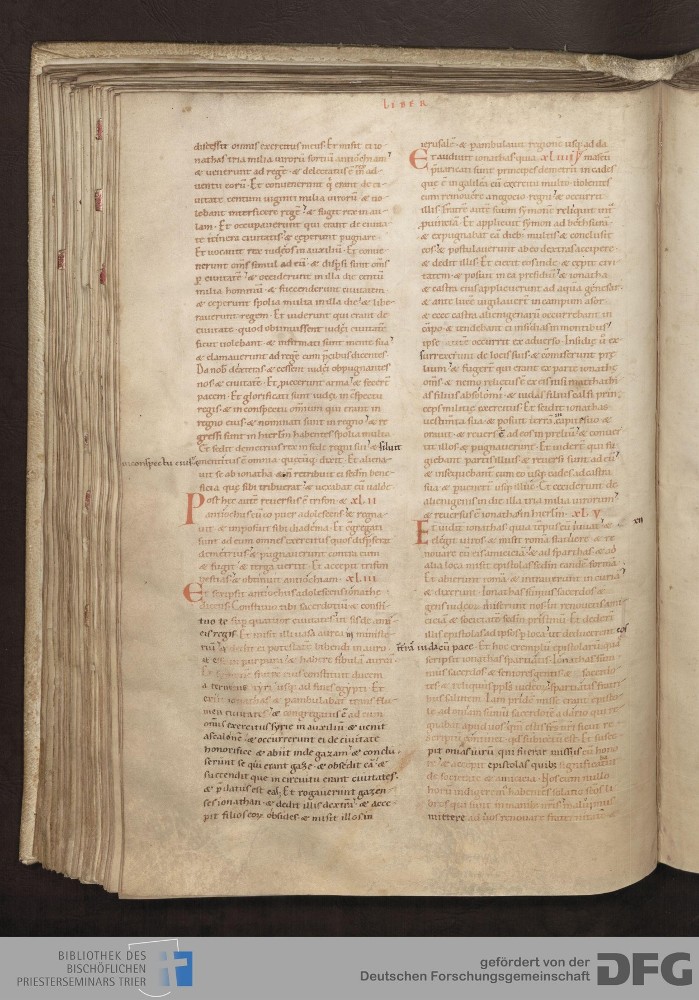 LIBER
diuersit omnis exercitus meus. Et misit ei io
nathas tria milia uirorū fortiū antiochiam
& uenerunt ad regē
uentu eorū. Et conuenerunt qi erant de ci
uitate centum uiginti milia uirorū & uo
lebant interficere regē & fugit rex in au
lam. Et occupauerunt qui erant de ciuita
te itinera ciuitatis & ceperunt pugnare.
Et uocauit rex iudeos in auxiliū. Et conue
nerunt oms simul ad eū & dispersi sunt oms
p ciuitatē & occiderunt in illa die centū
milia hominū & succenderunt ciuitatem
& ceperunt spolia multa in illa die & libe
rauerunt regem. Et uiderunt qui erant de
ciuitate quod obtinuissent iudei ciuitatē
sicut uolebant & infirmati sunt mente sua
& clamauerunt ad regē cum pcibus dicentes.
Da nob dextras & cessent iudei obpugnantes
nos & ciuitatē. Et piecerunt arma & fecerē
pacem. Et glorificati sunt iudei in cspectu
regis & in conspectu omnium qui erant in
regno eius & nominati sunt in regno & re
gressi sunt in hierlm habentes spolia multa.
Et sedit demetrius rex in sede regni sui & siluit
in conspectu eius
mentitus ē omnia quecūq dixit. Et aliena
uit se ab ionatha & n retribuit ei sedm bene
ficia que sibi tribuerat & uexabat eū ualde.
Post hec autē reuersus ē trifon & XLII
antiochus cū eo puer adolescens & regna
uit & imposuit sibi diadema. Et cgregati
sunt ad eum omnes exercitus quos disperserat
demetrius & pugnauerunt contra eum
& fugit & terga uertit. Et accepit trifon
bestias & obtinuit antiochiam. XLIII
Et scripsit antiochus adolescens ionathe
dicens. Constituo tibi sacerdotiū & consti
tuo te sup quatuor ciuitates ut sis de ami
cis regis. Et misit illi uasa aurea in ministe
riū & dedit ei potestatē bibendi in auro
& esse in purpura & habere fibulā aureā.
Et symonē fratrē eius constituit ducem
a terminis tyri usq ad fines egypti. Et
exiit ionathas & pambulabat trans flu
men ciuitates & congregatus ē ad eum
omis exercitus syrie in auxiliū & uenit
ascalonē & occurrerunt ei de ciuitate
honorifice & abiit inde gazam & conclu
serunt se qui erant gaze & obsedit eā &
succendit que in circuitu erant ciuitates
& pdatus est eas. Et rogauerunt gazen
ses ionathan & dedit illis dextrā & acce
pit filios eorum obsides & misit illos in
ierusalē & pambulauit regionē usq ad da
Et audiuit ionathas quia XLIIII mascū
puaricati sunt principes demetrii in cades
que ē in galilea cū exercitu multo uolentes
eum remouere a negocio regni & occurrit
illis. Fratrē autē suum symonē reliquit int
puinciā. Et applicuit symon ad bethsura
& expugnabat eā dieb multis & conclusit
eos & postulauerunt ab eo dextras accipere
& dedit illis. Et eiecit eos inde & cepit ciui
tatem & posuit in ea presidiū & ionatha
& castra eius applicuerunt ad aquā genesar
& ante lucē uigilauerunt in campum asor
& ecce castra alienigenarū occurrebant in
cāpo & tendebant ei insidias in montibus
ipse autē occurrit ex aduerso. Insidie ū ex
surrexerunt de locis suis & comiserunt pre
lium & fugerunt qui erant ex parte ionathe
oms & nemo relictus ē ex eis nisi matthathi
as filius absolomi & iudas filius calfi prin
ceps militie exercitus. Et scidit ionathas
uestimta sua & posuit terrā in capite suo &
orauit & reuersus ē ad eos in preliū & conuer
tit illos & pugnauerunt. Et uiderē qui fu
giebant partis illius & reuersi sunt ad eū
& insequebant cum eo usq cades ad castra
sua & puenerunt usq illuc. Et ceciderunt de
alienigenis in die illa tria milia uirorum
& reuersus ē ionathas in hierlm. XLV
Et uidit ionathas quia tempus eū iuuat &
XII
elegit uiros & misit romā statuere & re
nouare cū eis amiciciā & ad spartihas & ad
alia loca misit epistolas sedm eandē formā.
Et abierunt romā & intrauerunt in curiā
& dixerunt. Ionathas sūmus sacerdos &
gens iudeor miserunt nos ut renouem ami
ciciā & societatē sedm pristinū. Et dederē
illis epistolas ad ipsos p loca ut deducerent eos
in terrā iuda cū pace. Et hoc exemplū epistolarū quas
scripsit ionathas spartiatis. Ionathas sum
mus sacerdos & seniores gentis & sacerdo
tes & reliquus ppls iudeor spartiatis fratrib
salutem. Iam pridē misse erant epistol
te ad oniam summū sacerdotē a dario qui re
gnabat apud uos qm estis frs nri sicut re
scriptū continet qd subiectū est. Et susce
pit onias uirū qui fuerat missus cū hono
re & accepit epistolas quib significabat
de societate & amicicia. Nos cum nullo
horū indigerem habentes solatio scos li
bros qui sunt in manib nris maluimus
mittere ad uos renouare fraternitatē &
BIBLIOTHEK DES
BISCHÖFLICHEN
PRIESTERSEMINARS TRIER
gefördert von der
Deutschen Forschungsgemeinschaft
DFG